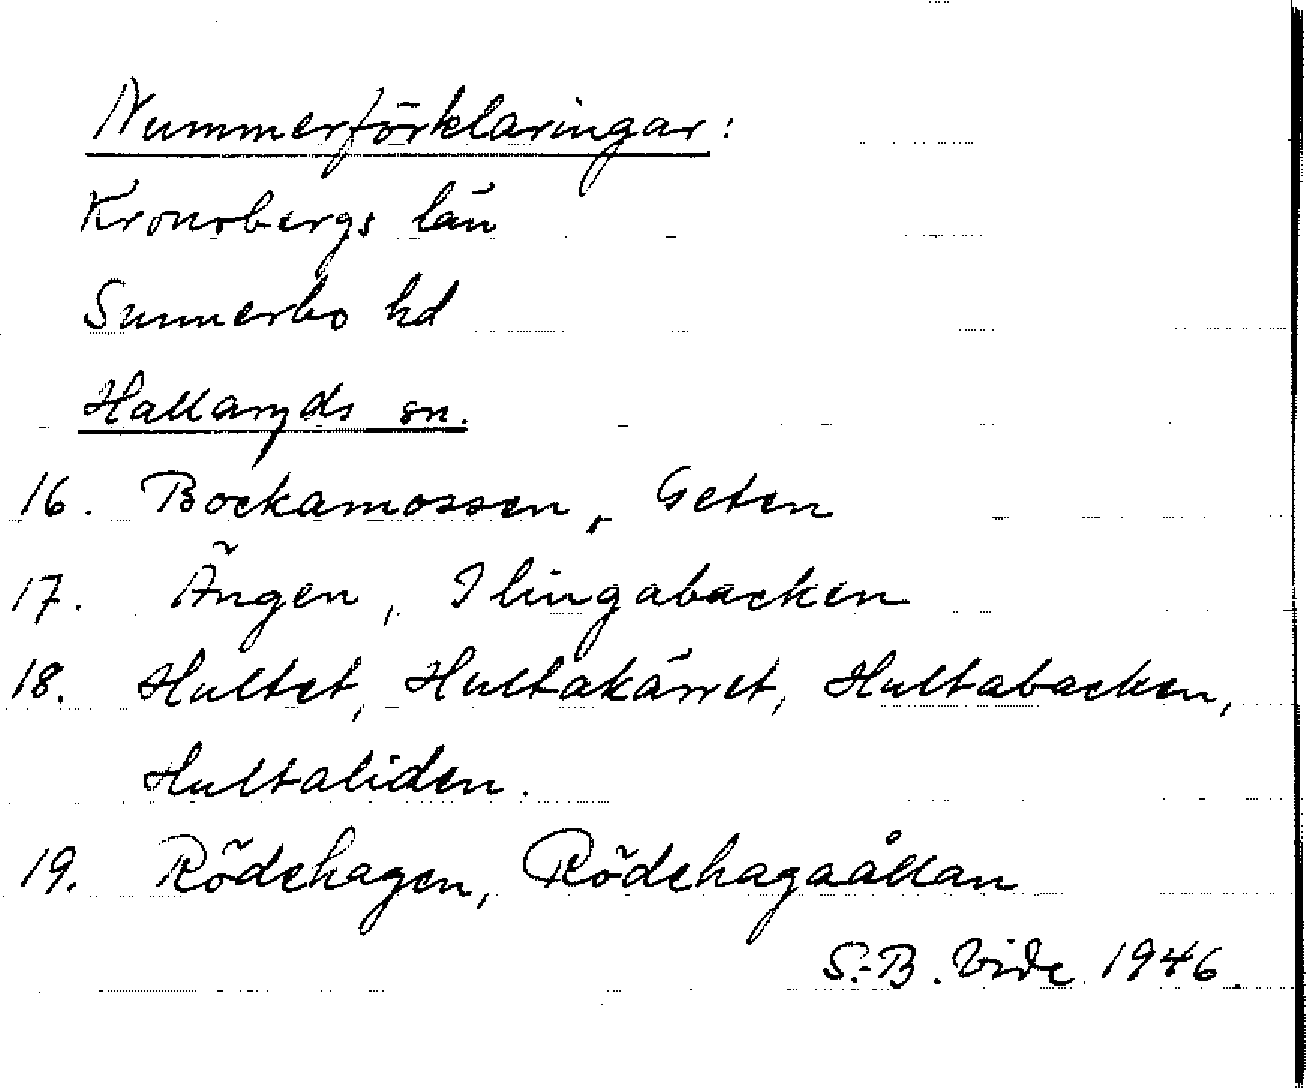 Nummerförklaringar:
Kronobergs län
Sunnerbo hd
Hallaryds sn.
16. Bockamossen, Geten
17. Ängen, Ilingabacken
18. Hultet, Hultakärret, Hultabacken,
Hultaliden.
19. Rödehagen, Rödehagaåkan
S.-B. Vide 1946.